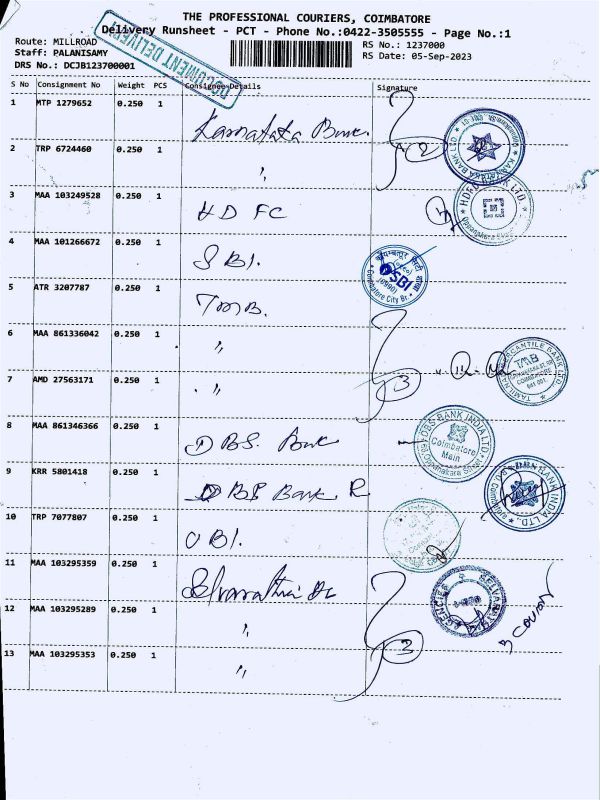 THE PROFESSIONAL COURIERS, COIMBATORE
Delivery Runsheet - PCT - Phone No.:0422-3505555 - Page No.:1
Route: MILLROAD
Staff: PALANISAMY
DRS No.: DCJB123700001
RS No.: 1237000
RS Date: 05-Sep-2023
DOCUMENT DELIVERY
S No Consignment No Weight PCS Consignee Details Signature
1 MTP 1279652 0.250 1 Karnataka Bank
2 TRP 6724460 0.250 1 "
2
KARNATAKA BANK LTD.
3 MAA 103249528 0.250 1 HDFC
HDFC BANK LTD.
4 MAA 101266672 0.250 1 SBI.
कोयम्बतूर सिटी शाखा
SBI
Coimbatore City Br.
5 ATR 3207787 0.250 1 TMB.
6 MAA 861336042 0.250 1 "
7 AMD 27563171 0.250 1 "
3
TAMILNAD MERCANTILE BANK LTD
TMB
COIMBATORE
641 001.
8 MAA 861346366 0.250 1 DBS. Bank
DBS BANK INDIA LTD.
Coimbatore
Main
9 KRR 5801418 0.250 1 DBS Bank R
DBS BANK INDIA LTD.
10 TRP 7077807 0.250 1 UBI.
11 MAA 103295359 0.250 1
SELVARATHNA AGENCIES
12 MAA 103295289 0.250 1 "
3
3 COVER
13 MAA 103295353 0.250 1 "